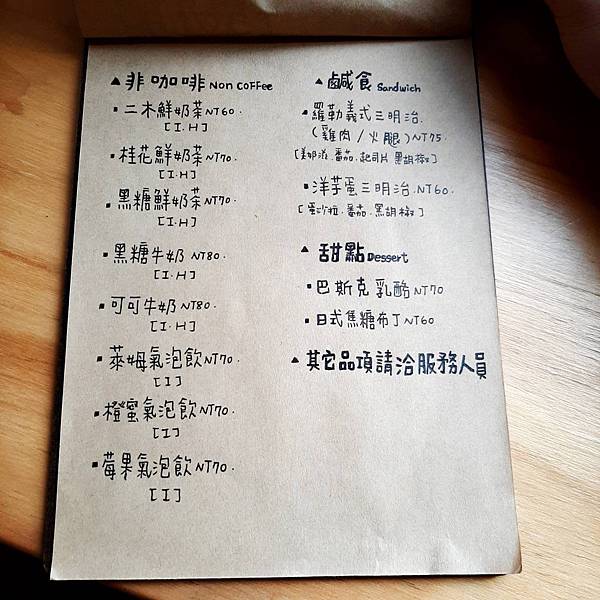 ▲ 非咖啡 Non Coffee
▪ 二木鮮奶茶 NT60.
[I.H]
▪ 桂花鮮奶茶 NT70
[I.H]
▪ 黑糖鮮奶茶 NT70.
[I.H]
▪ 黑糖牛奶 NT80.
[I.H]
▪ 可可牛奶 NT80.
[I.H]
▪ 萊姆氣泡飲 NT70.
[I]
▪ 橙蜜氣泡飲 NT70.
[I]
▪ 莓果氣泡飲 NT70.
[I]
▲ 鹹食 Sandwich
▪ 羅勒義式三明治.
(雞肉/火腿) NT75.
[美奶滋.番茄.起司片.黑胡椒]
▪ 洋芋蛋三明治.NT60.
[蛋沙拉.番茄.黑胡椒]
▲ 甜點 Dessert
▪ 巴斯克乳酪 NT70
▪ 日式焦糖布丁 NT60
▲ 其它品項請洽服務人員